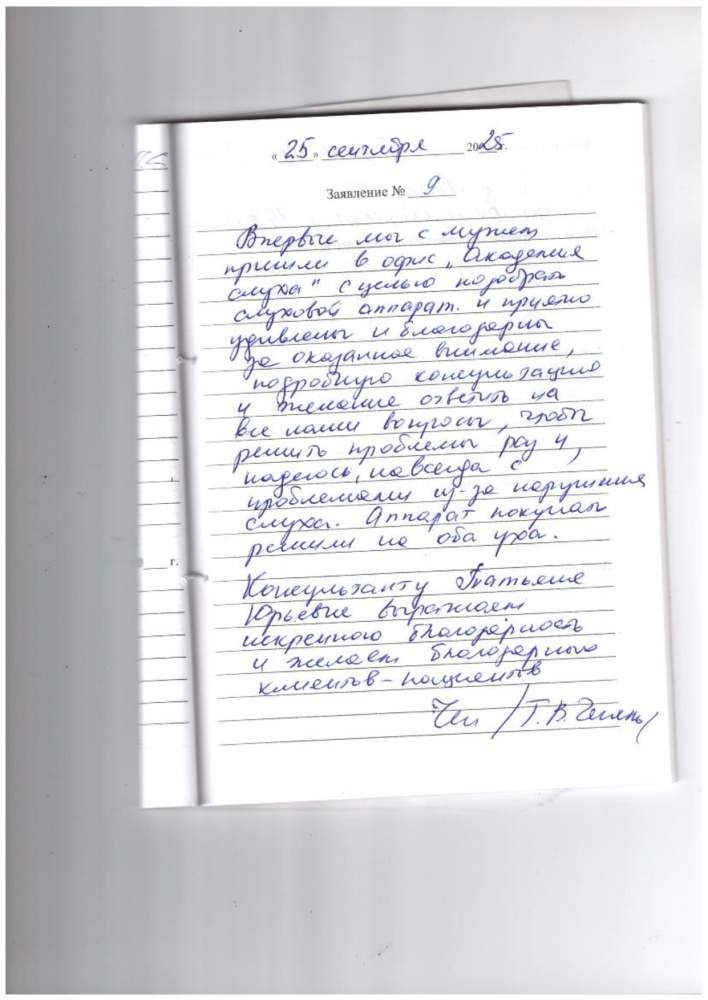 « 25 » сентября 2025 г.
Заявление № 9
Впервые мы с мужем
пришли в офис „Академия
слуха" с целью подобрать
слуховой аппарат. и приятно
удивлены и благодарны
за оказанное внимание,
подробную консультацию
и желание ответить на
все наши вопросы, чтобы
решить проблемы раз и,
надеюсь, навсегда с
проблемами из-за нарушения
слуха. Аппарат покупать
решили на оба уха.
г.
Консультанту Татьяне
Юрьевне выражаем
искреннюю благодарность
и желаем благодарных
клиентов-пациентов
/Т.В.